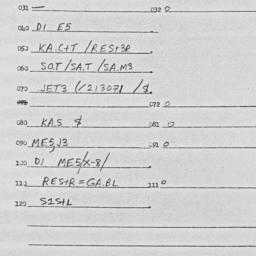 031 — 032 0
040 D1 E5
050 KA.C+T /RES+3R
060 SO.T/SA.T/SA.M3
070 JET3 (/213071 /$.
072 0
080 KA.S $ 081 0
090 ME5,J3 091 0
100 D1 ME5/X-8/
110 RES+R=GA.BL 111 0
120 S1S+L